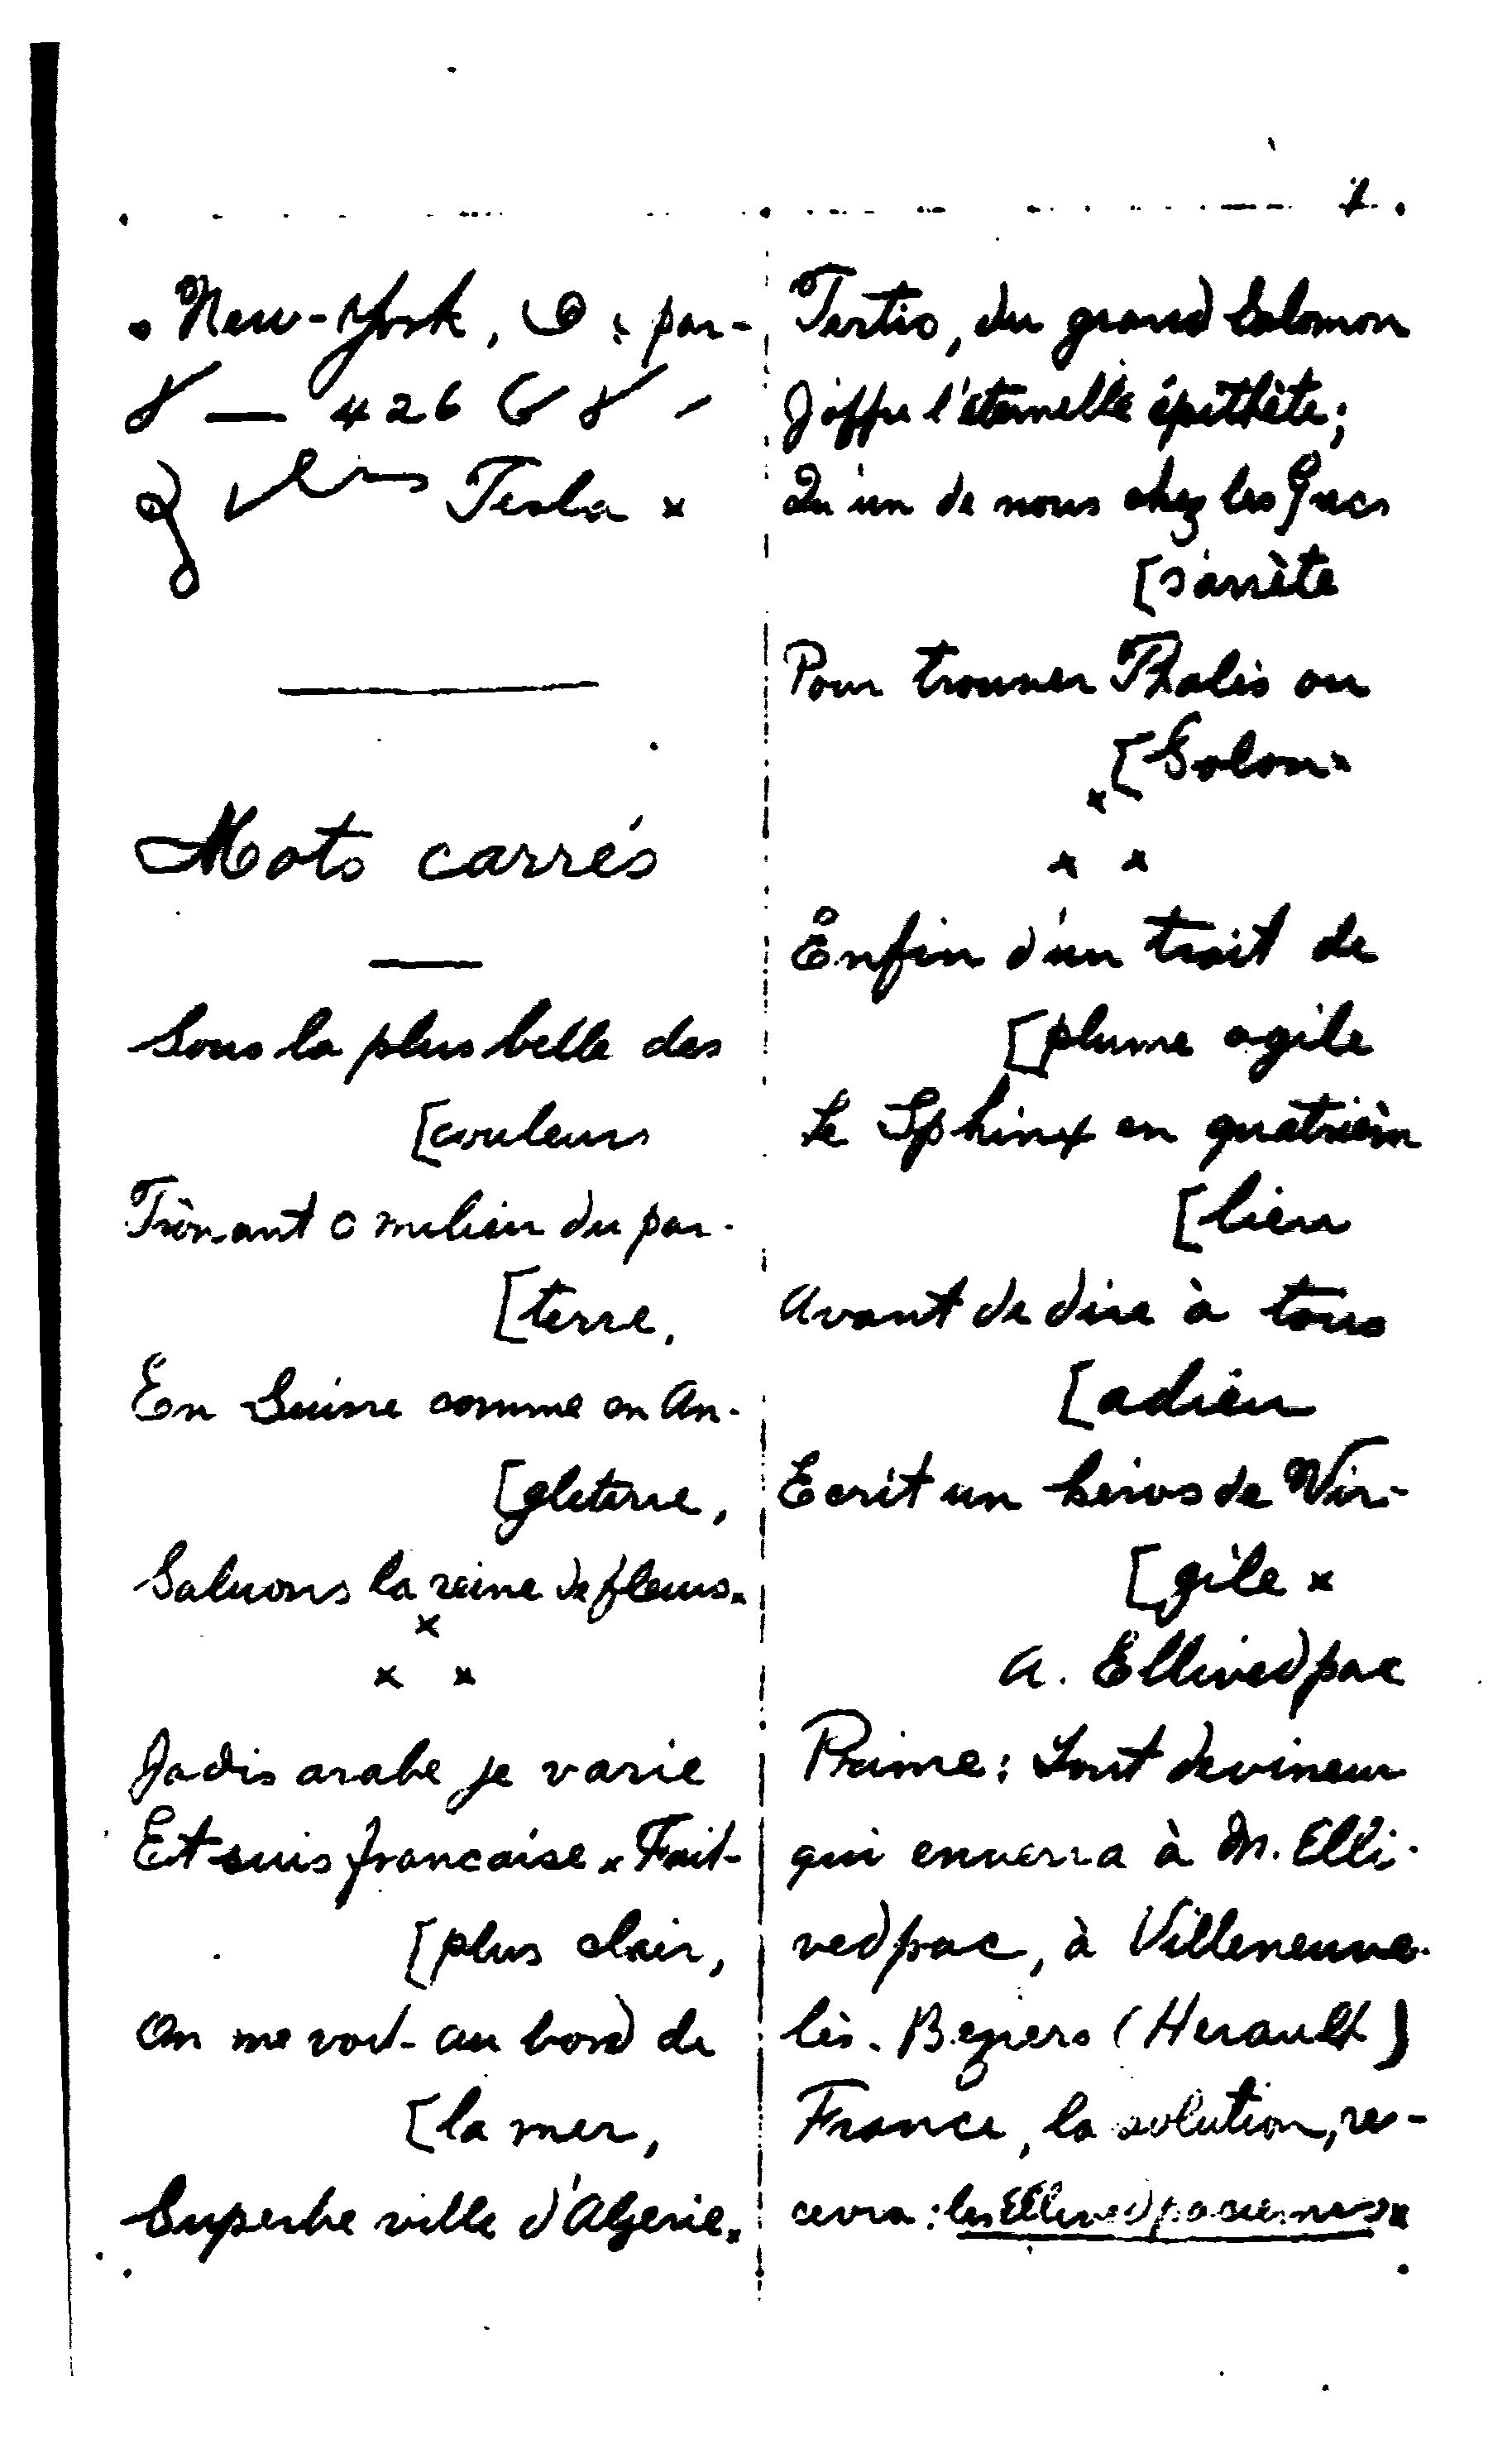 7.
New-York, par-
— 426
Tesla ×
Mots carrés
Sous la plus belle des
[couleurs
Trônant o milieu du par-
[terre,
En Suisse comme en An-
[gleterre,
Saluons la reine de fleurs ×
×
× ×
Jadis arabe je varie
Et suis francaise × Fait-
[plus clair,
On me voit au bord de
[la mer,
Superbe ville d'Algerie ×
Tertio, du grand Salomon
J'offre l'éternelle épithète;
Qu'un de nous chez les Grecs
[s'arrète
Pour trouver Thalès ou
[Solon ×
×
× ×
Enfin d'un trait de
[plume agile
Le Sphinx en quatrièm
[lieu
Avant de dire à tous
[adieu
Ecrit un héros de Vir-
[gile ×
A. Ellivedpac
Prime: Tout devineur
qui enverra à M. Elli-
vedpac, à Villeneuve-
lès-Beziers (Herault)
France, la solution, re-
cevra: les Ellivedpaciennes ×